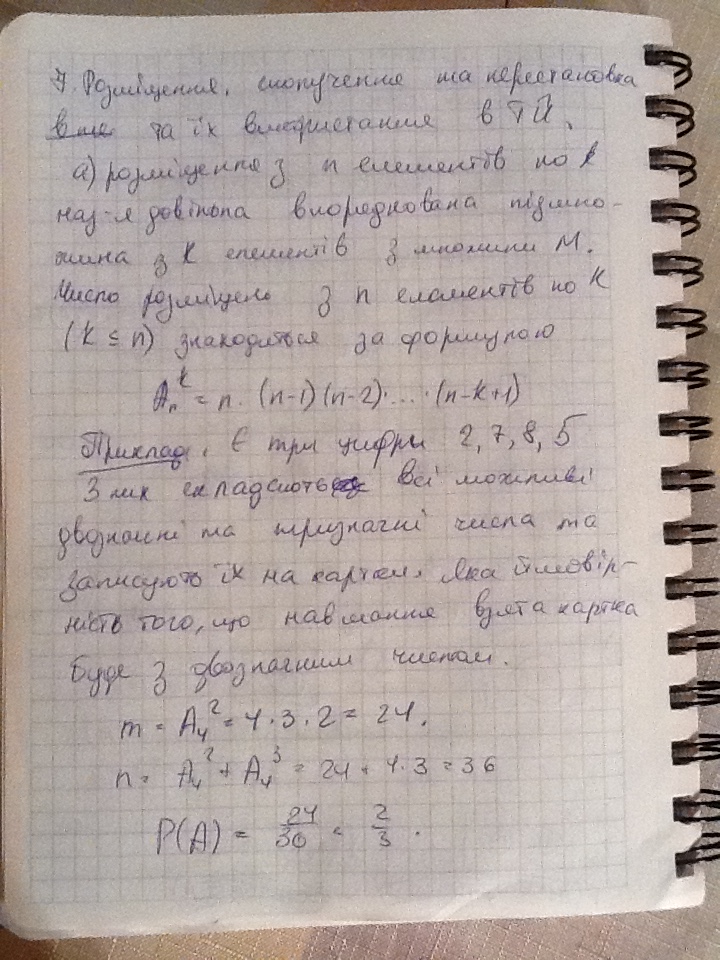 7. Розміщення, сполучення та перестановка
за їх використання в ТЙ.
а) розміщення з n елементів по k
наз-є довільна впорядкована підмно-
жина з k елементів з множини M.
Число розміщень з n елементів по k
(k ≤ n) знаходиться за формулою
Aₙᵏ = n · (n-1)(n-2)· ... · (n-k+1)
Приклад: Є три цифри 2, 7, 8, 5
З них складають всі можливі
двозначні та трицифрові числа та
записують їх на картки. Яка ймовір-
ність того, що навмання взята картка
буде з двозначним числом.
m = A₄² = 4·3·2 = 24.
n = A₄² + A₄³ = 24 + 4·3 = 36
P(A) = 24/36 = 2/3 .